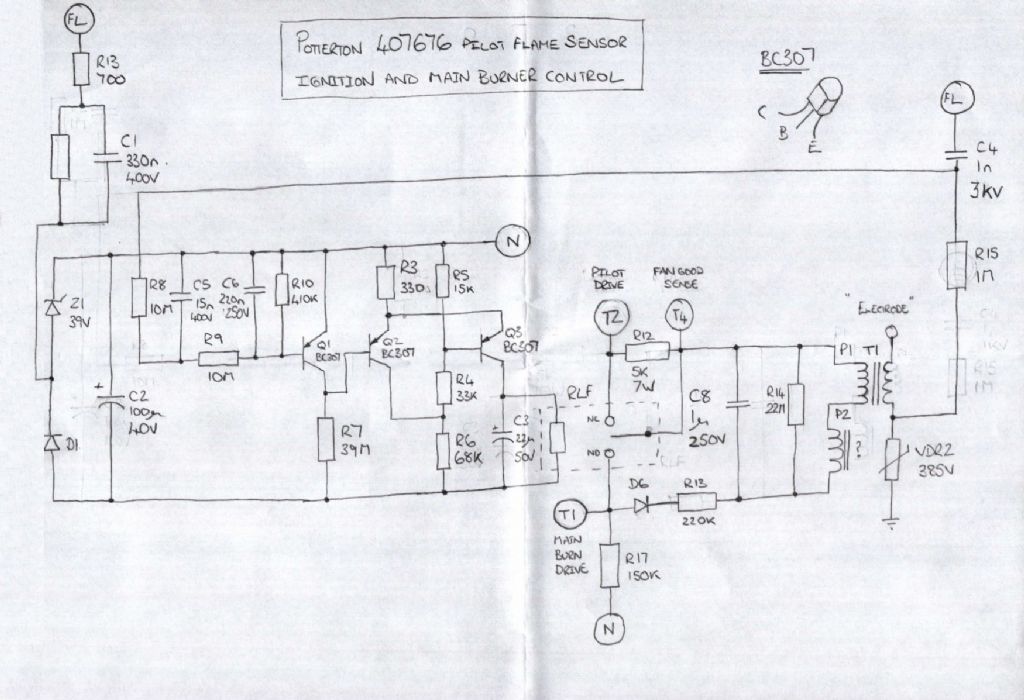 POTTERTON 407676 PILOT FLAME SENSOR
IGNITION AND MAIN BURNER CONTROL
FL
R13
700
C1
330n
400V
BC307
C
B
E
FL
C4
1n
3KV
R15
1M
N
Z1
39V
R8
10M
C5
15n
400V
C6
220n
250V
R10
410K
R9
10M
Q1
BC307
R3
330
Q2
BC307
R5
15K
Q3
BC307
+
C2
100µ
40V
D1
R7
39M
R4
33K
R6
68K
+
C3
22µ
50V
RLF
RLF
PILOT
DRIVE
T2
FAN GOOD
SENSE
T4
R12
5K
7W
NC
NO
C8
1µ
250V
R14
22M
"ELECRODE"
P1
T1
P2
?
VDR2
385V
D6
R13
220K
T1
MAIN
BURN
DRIVE
R17
150K
N
R15
1M